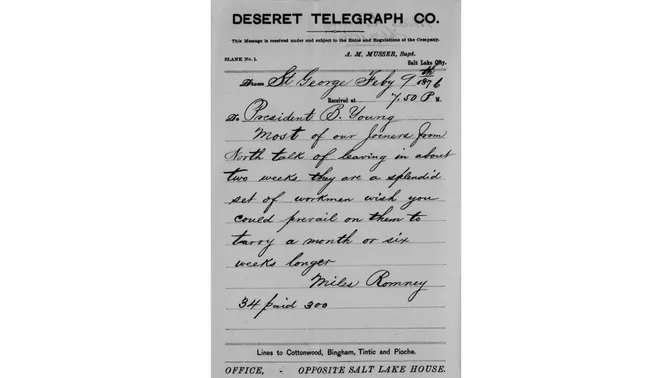 DESERET TELEGRAPH CO.
This Message is received under and subject to the Rules and Regulations of the Company.
A. M. MUSSER, Supt.
BLANK No. 1.
Salt Lake City.
From St George Feby 9th 1876
Received at 7.50 P M.
To President B. Young
Most of our Joiners from
North talk of leaving in about
two weeks they are a splendid
set of workmen wish you
could prevail on them to
tarry a month or six
weeks longer
Miles Romney
34 paid 300
Lines to Cottonwood, Bingham, Tintic and Pioche.
OFFICE, - OPPOSITE SALT LAKE HOUSE.